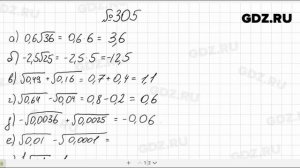 №305
GDZ.RU
а) 0,6√36 = 0,6·6 = 3,6
б) -2,5√25 = -2,5·5 = -12,5
в) √0,49 + √0,16 = 0,7 + 0,4 = 1,1
г) √0,64 - √0,04 = 0,8 - 0,2 = 0,6
д) -√0,0036 + √0,0025 = -0,06
е) √0,01 - √0,0001 =
GDZ.RU